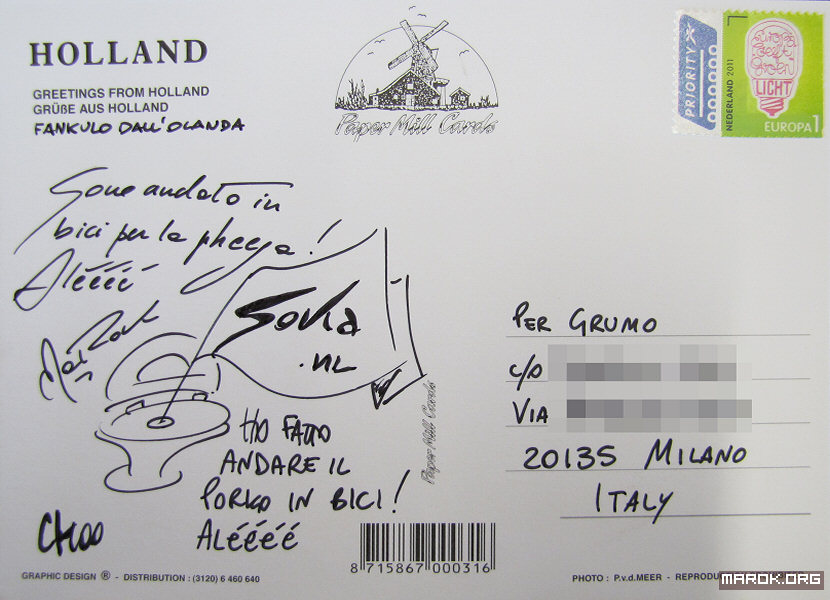 HOLLAND
GREETINGS FROM HOLLAND
GRÜßE AUS HOLLAND
FANKULO DALL'OLANDA
Paper Mill Cards
PRIORITY
NEDERLAND 2011
LICHT
EUROPA 1
Sono andato in
bici per la pheega!
Alééééé
Sovia
.NL
HO FATTO
ANDARE IL
PORKO IN BICI!
ALÉÉÉÉ
PER GRUMO
c/o
VIA
20135 MILANO
ITALY
Paper Mill Cards
8 715867 000316
GRAPHIC DESIGN ® - DISTRIBUTION : (3120) 6 460 640
PHOTO : P.v.d.MEER - REPRODU
MAROK.ORG